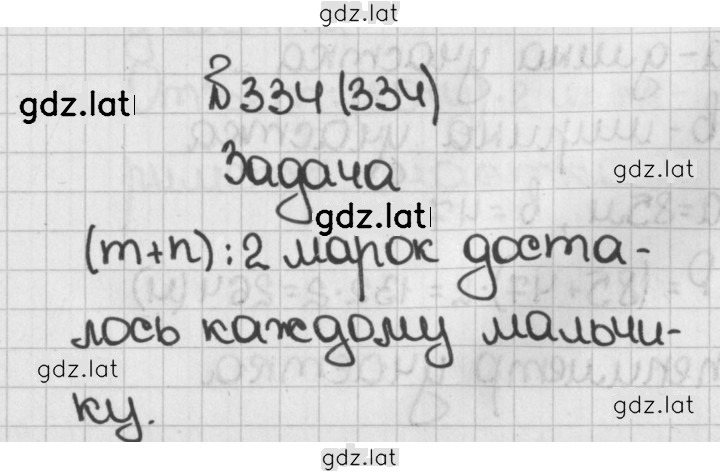 gdz.lat
№334 (334)
gdz.lat
Задача
gdz.lat
gdz.lat
(m+n):2 марок доста-
лось каждому мальчи-
gdz.lat
ку.
gdz.lat
gdz.lat